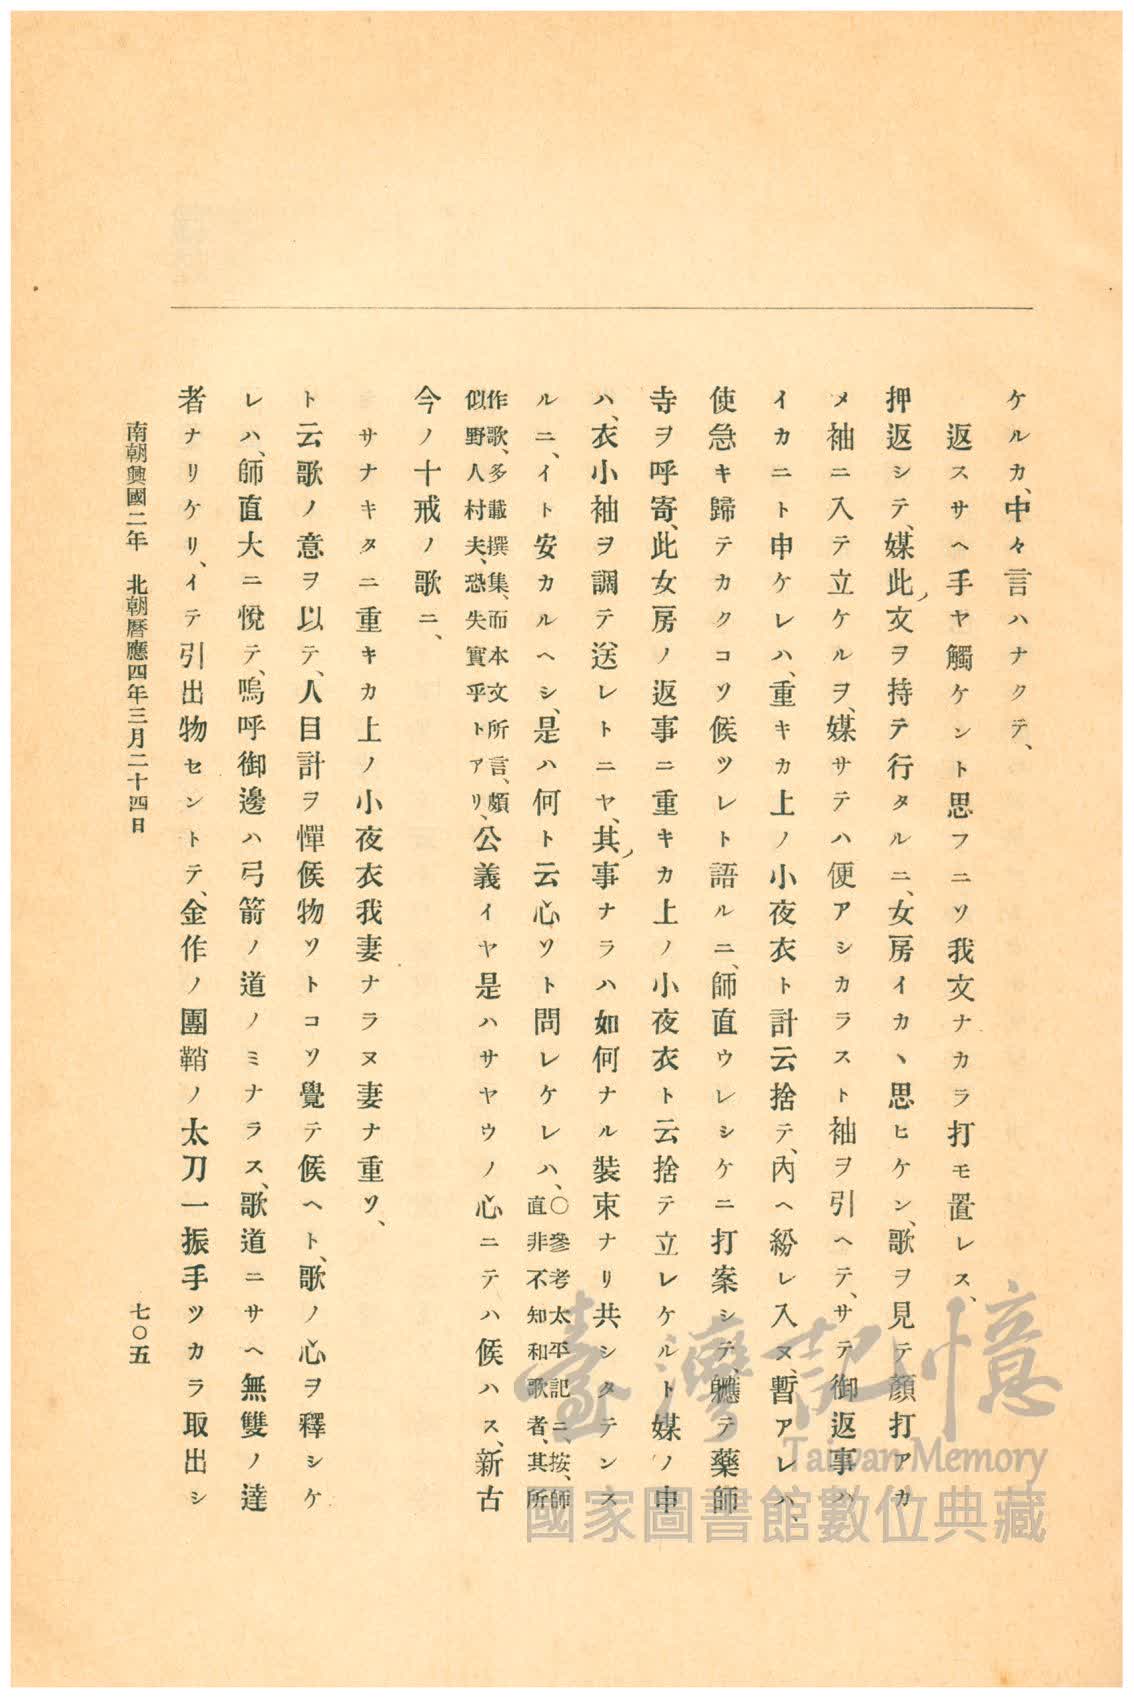 ケルカ、中々言ハナクテ、
返スサヘ手ヤ觸ケントト思フニソ我文ナカラ打モ置レス、
押返シテ、媒此文ヲ持テ行タルニ、女房イカヽ思ヒケン、歌ヲ見テ顏打アカ
メ袖ニ入テ立ケルヲ、媒サテハ便アシカラスト袖ヲ引ヘテ、サテ御返事ハ
イカニト申ケレハ、重キカ上ノ小夜衣ト計云捨テ、內ヘ紛レ入ヌ、暫アレハ、
使急キ歸テカクコソ候ツレト語ルニ、師直ウレシケニ打案シテ、軈テ藥師
寺ヲ呼寄、此女房ノ返事ニ重キカ上ノ小夜衣ト云捨テ立レケルト媒ノ申
ハ、衣小袖ヲ調テ送レトニヤ、其事ナラハ如何ナル裝束ナリ共シタテンス
ルニ、イト安カルヘシ、是ハ何ト云心ソト問レケレハ、〇參考太平記ニ、按、師直非不知和歌者、其所
作歌、多載撰集、而本文所言、頗似野人村夫、恐失實乎トアリ、公義イヤ是ハサヤウノ心ニテハ候ハス、新古
今ノ十戒ノ歌ニ、
サナキタニ重キカ上ノ小夜衣我妻ナラヌ妻ナ重ソ、
ト云歌ノ意ヲ以テ、人目計ヲ憚候物ソトコソ覺テ候ヘト、歌ノ心ヲ釋シケ
レハ、師直大ニ悅テ、嗚呼御邊ハ弓箭ノ道ノミナラス、歌道ニサヘ無雙ノ達
者ナリケリ、イテ引出物セントテ、金作ノ團鞘ノ太刀一振手ツカラ取出シ
南朝興國二年 北朝曆應四年三月二十四日
七〇五
臺灣記憶
Taiwan Memory
國家圖書館數位典藏